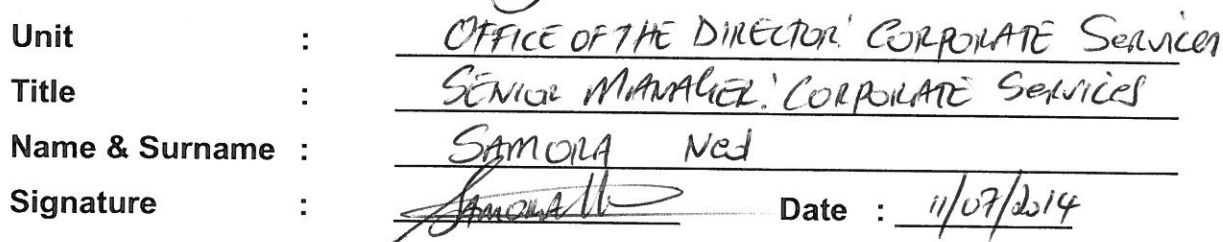 Unit : OFFICE OF THE DIRECTOR: CORPORATE Services
Title : SENIOR MANAGER: CORPORATE Services
Name & Surname : SAMORA Ned
Signature : Samora Date : 11/07/2014